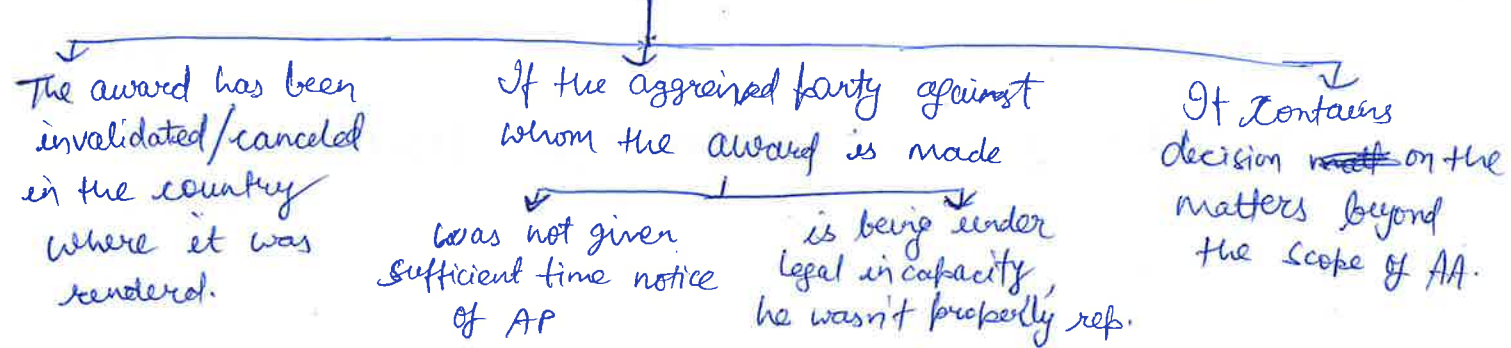 The award has been
invalidated/canceled
in the country
where it was
renderd.
If the aggreived party against
whom the award is made
was not given
sufficient time notice
of AP
is being under
legal incapacity,
he wasn't properly rep.
It contains
decision on the
matters beyond
the scope of AA.